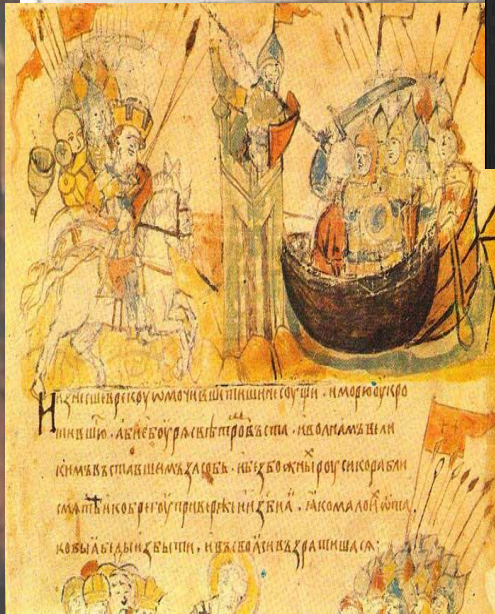 Изнесшеврекоуѡмочившитишинесоущи . иморюоукро
тившиⷭ . абиебоурѧсвѣтроⷨвъста . иволнамъвели
кимъвъставшимъзасобь . ибезбожныⷯроусикорабли
смѧтеикобрегоупривержеиизбиѧ . ꙗкомалоиⷯѿта
ковыѧбедыизбыти , ивъсвоѧсивъзратишасѧ :